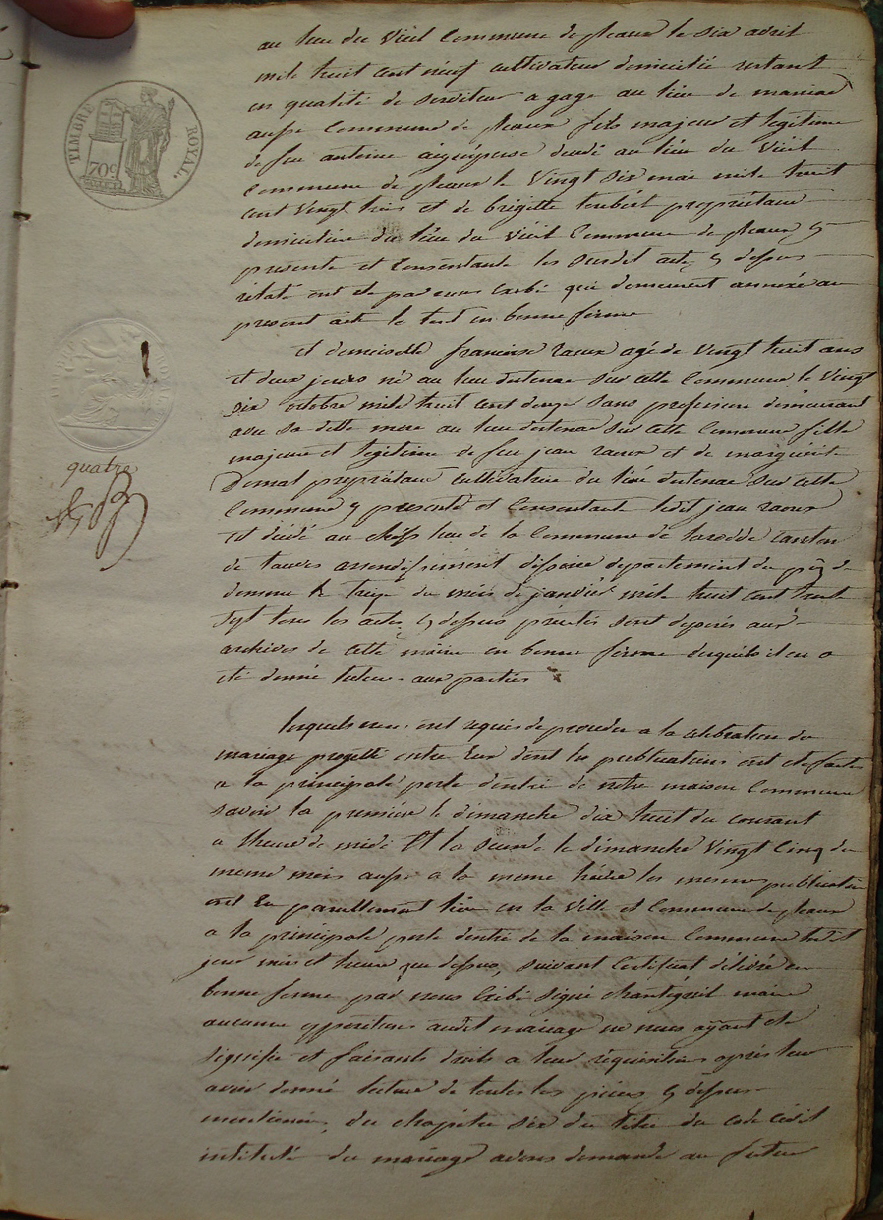 TIMBRE ROYAL
70c
quatre
au lieu du Vieil Commune de pleaux le six avril
mile huit cent neuf cultivateur domicilié restant
en qualité de serviteur a gage au lieu de
aussi Commune de pleaux fils majeur et legitime
de feu antoine aigueperse decedé au lieu du Vieil
Commune de pleaux le Vingt six mai mile huit
cent Vingt trois et de brigitte propriétaire
domiciliée du lieu du Vieil Commune de pleaux y
presente et Consentante les susdit acte cy dessus
relaté ont été par nous qui demeurent annexé au
present acte le tout en bonne forme
et demoiselle francoise raoux agé de Vingt huit ans
et deux jours né au lieu sur cette Commune le Vingt
six octobre mile huit cent douze sans profession demeurant
avec sa dite mere au lieu sur cette Commune fille
majeure et legitime de feu jean raoux et de marguerite
propriétaire Cultivatrice du lieu sur cette
Commune y presente et Consentante ledit jean raoux
est décédé au cheff lieu de la Commune de larodde canton
de tauves arrondissement dissoire departement du puy de
domme le treize du mois de janvier mile huit cent trente
sept tous les actes cy dessus précités sont deposés aux
archives de cette mairie en bonne forme desquels il en a
été donné lecture aux parties
lesquels nous ont requis de proceder a la celebration du
mariage projetté entre Eux dont les publications ont été faites
a la principale porte dentré de notre maison Commune
savoir la première le dimanche dix huit du courant
a lheure de midi Et la seconde le dimanche Vingt Cinq du
meme mois aussi a la meme heure les memes publication
ont Eu pareillement lieu en la Ville et Commune de pleaux
a la principale porte dentré de la maison Commune
jour mois et heure que dessus, suivant Certificat délivré en
bonne forme par nous signé maire
aucune opposition audit mariage ne nous ayant été
signifié et faisante droits a leur réquisition après leur
avoir donné lecture de toutes les pièces cy dessus
mentionnée, du chapitre six du titre du code civil
intitulé du mariage avons demandé au futur